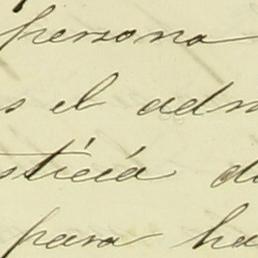 persona
s el adm
sticia d
para ha